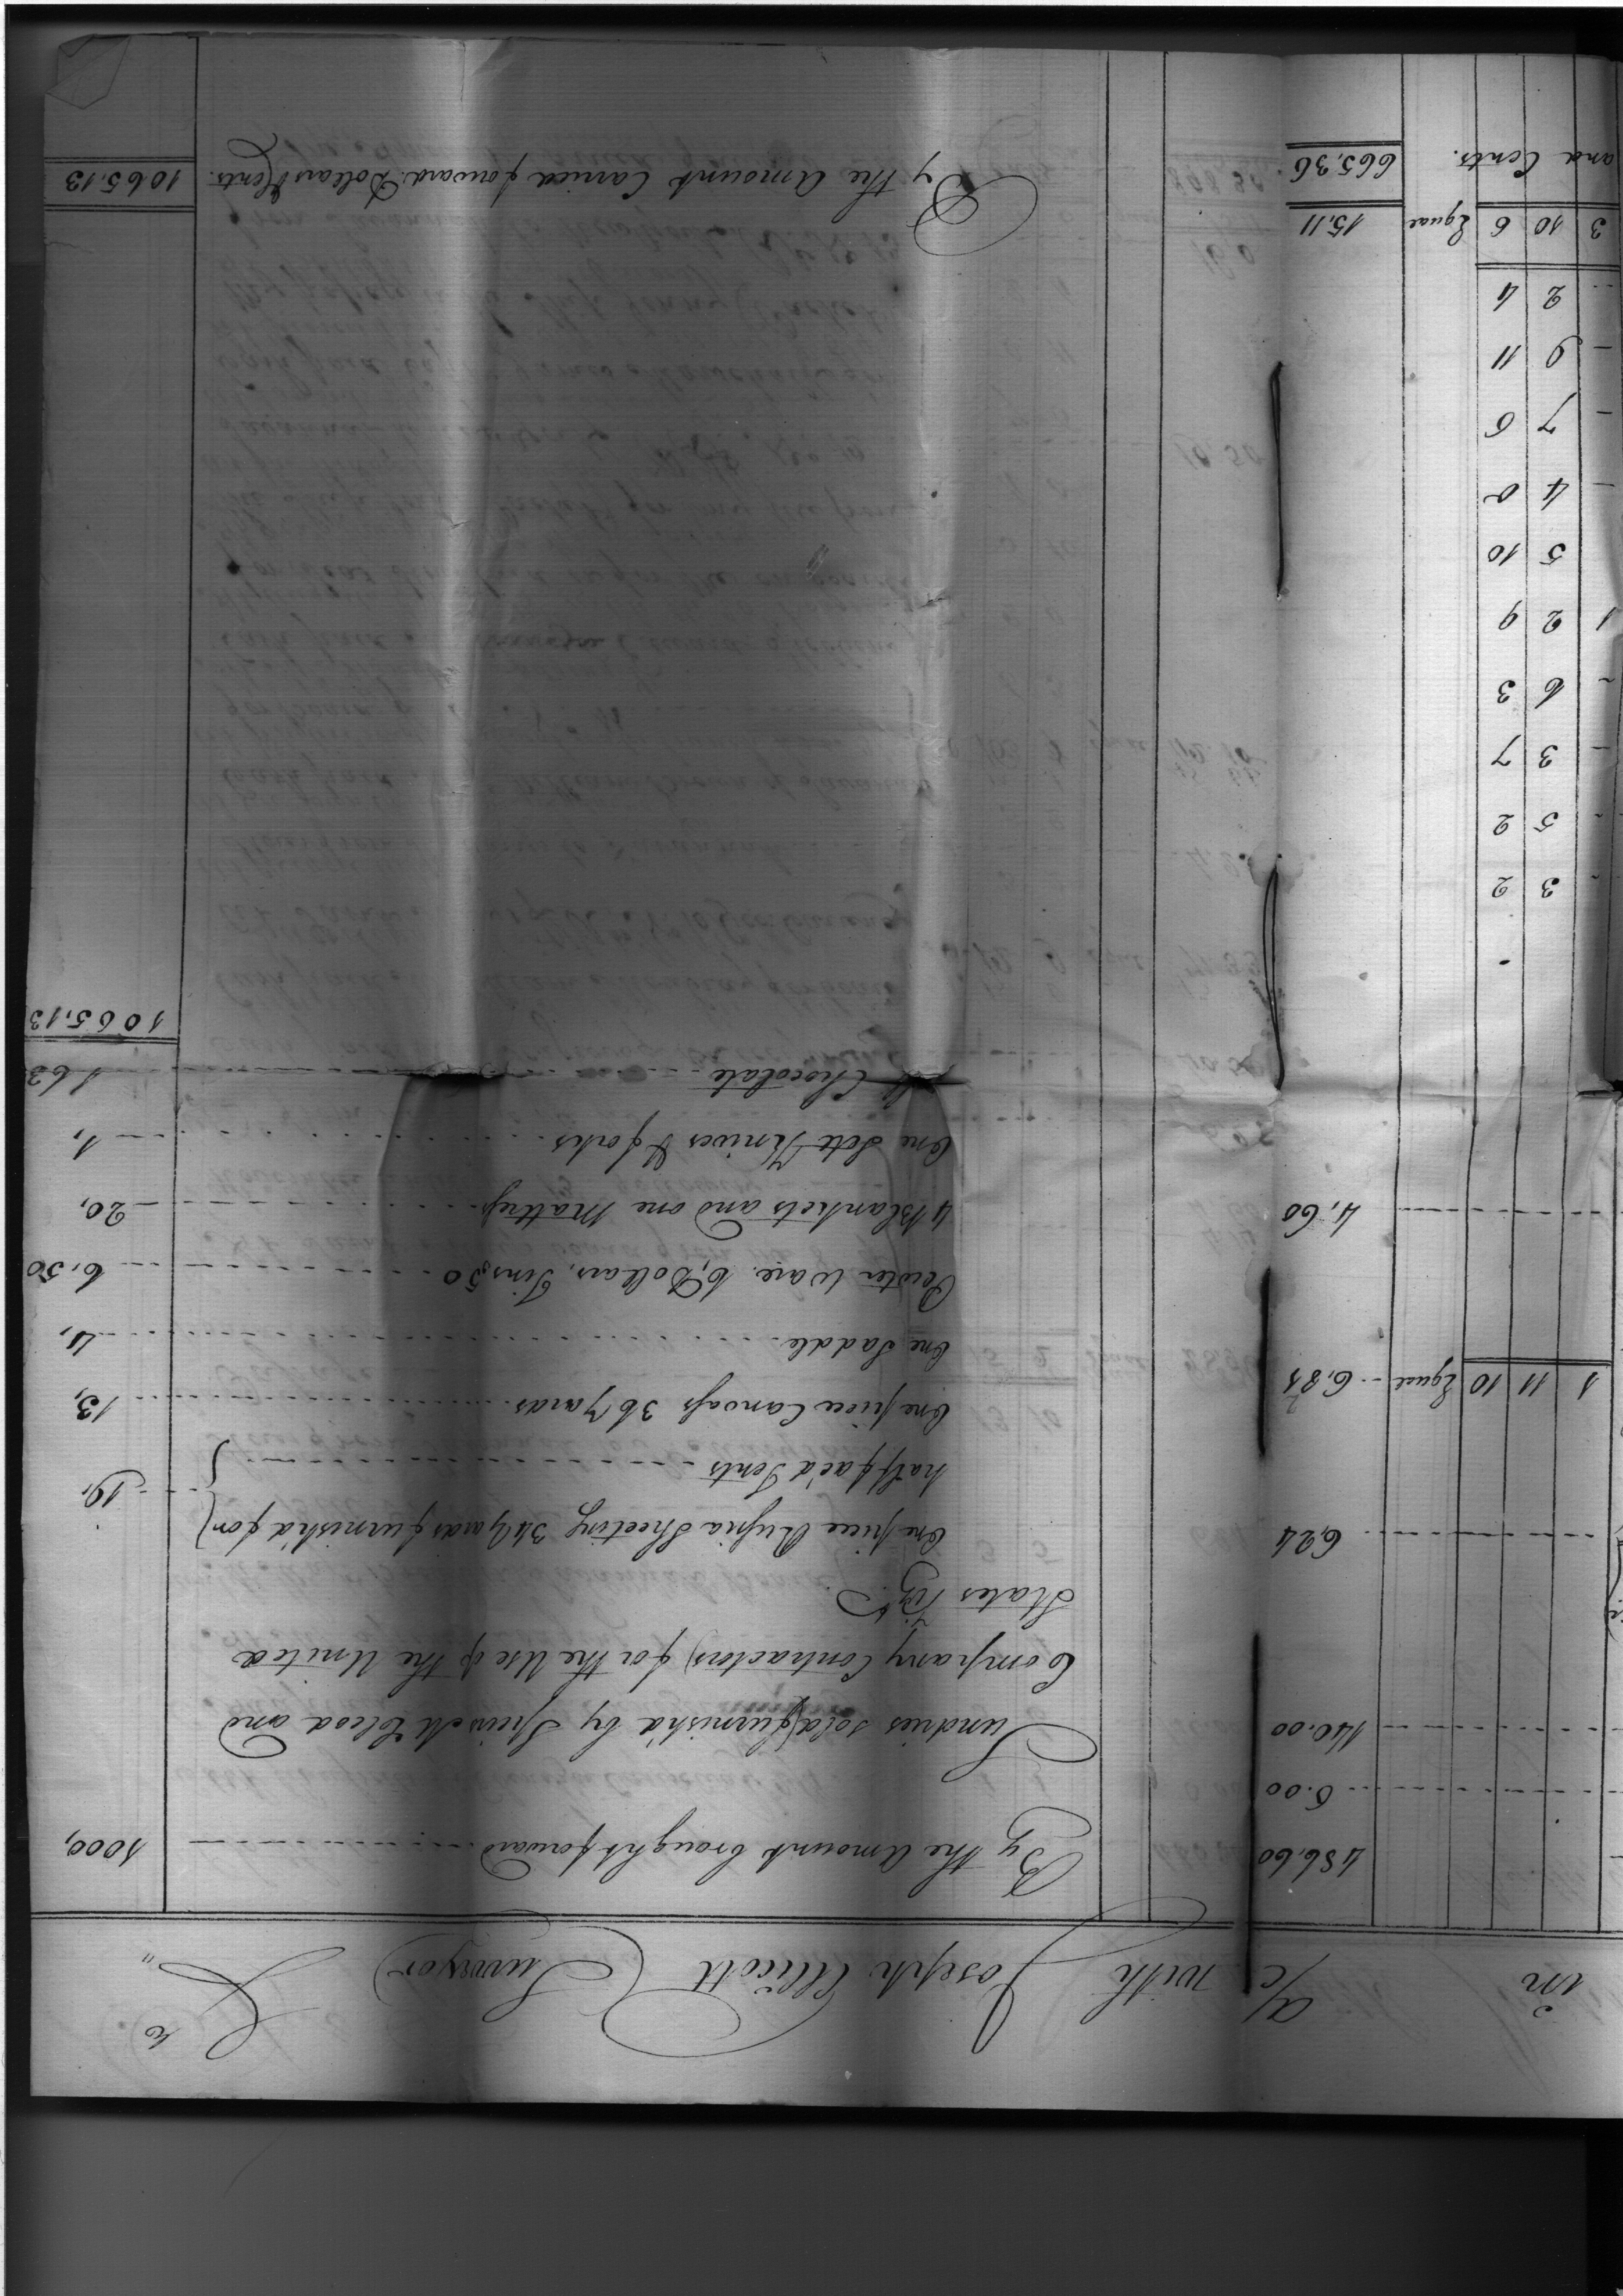 in a/c with Joseph Ellicott Surveyor &c "
486,60
6.00
140.00
6,24
1 11 10 Equal 6,85
4,60
3 2
5 2
3 7
6 3
1 2 9
5 10
4 0
7 6
9 11
2 4
3 10 6 Equal 15,11
and Cents. 665,36
By the Amount brought forward 1000,
Sundries sold furnish'd by and
Company Contractors) for the Use of the United
States Viz.
One piece Russia Sheeting 34 Yards furnish'd for
half fac'd Tents 19,
One piece Canvass 36 Yards 13,
One Saddle 4,
Pewter Ware. 6, Dollars, Tins,50 6,50
4 Blankets and one Mattress 20,
One Sett Knives & forks 1,
Chocolate 1 63
1065,13
By the Amount Carried forward. Dollars & Cents. 1065.13